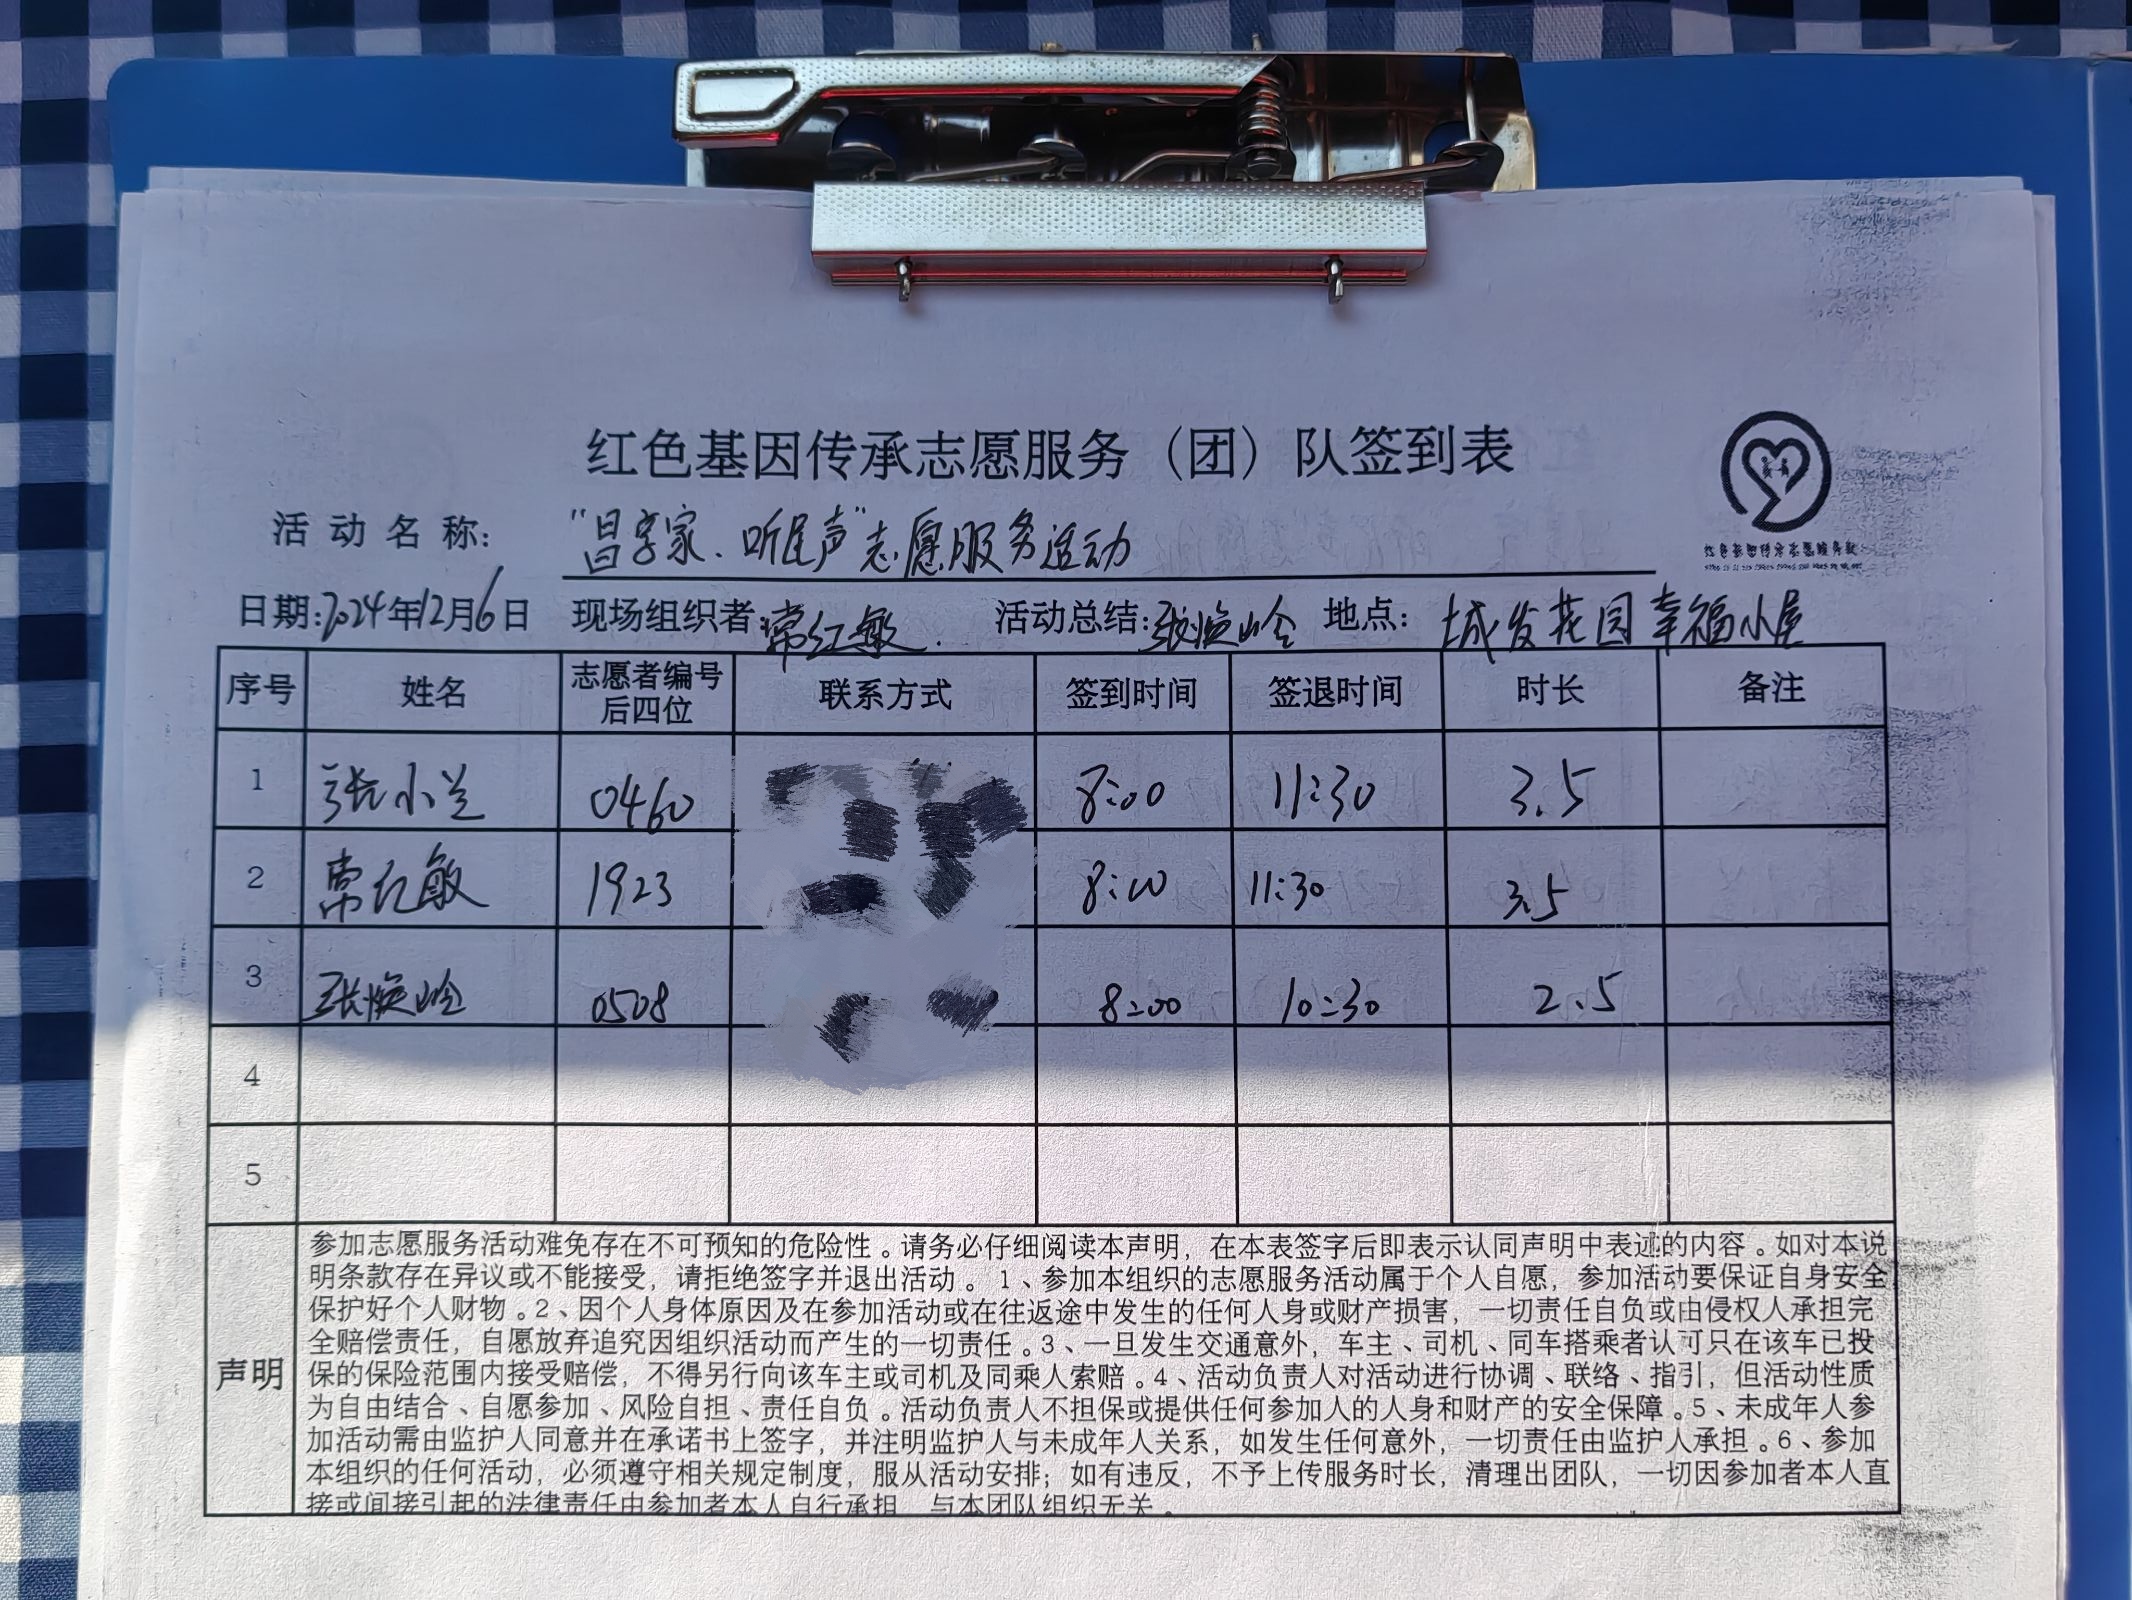 红色基因传承志愿服务（团）队签到表
活动名称: "昌字家、听民声"志愿服务活动
日期:2024年12月6日 现场组织者:常红敏. 活动总结:张焕岭 地点: 城发花园幸福小屋
序号 姓名 志愿者编号后四位 联系方式 签到时间 签退时间 时长 备注
1 张小兰 0460 8:00 11:30 3.5
2 常红敏 1923 8:00 11:30 3.5
3 张焕岭 0508 8:00 10:30 2.5
4
5
声明
参加志愿服务活动难免存在不可预知的危险性。请务必仔细阅读本声明，在本表签字后即表示认同声明中表述的内容。如对本说
明条款存在异议或不能接受，请拒绝签字并退出活动。1、参加本组织的志愿服务活动属于个人自愿，参加活动要保证自身安全
保护好个人财物。2、因个人身体原因及在参加活动或在往返途中发生的任何人身或财产损害，一切责任自负或由侵权人承担完
全赔偿责任，自愿放弃追究因组织活动而产生的一切责任。3、一旦发生交通意外，车主、司机、同车搭乘者认可只在该车已投
保的保险范围内接受赔偿，不得另行向该车主或司机及同乘人索赔。4、活动负责人对活动进行协调、联络、指引，但活动性质
为自由结合、自愿参加、风险自担、责任自负。活动负责人不担保或提供任何参加人的人身和财产的安全保障。5、未成年人参
加活动需由监护人同意并在承诺书上签字，并注明监护人与未成年人关系，如发生任何意外，一切责任由监护人承担。6、参加
本组织的任何活动，必须遵守相关规定制度，服从活动安排；如有违反，不予上传服务时长，清理出团队，一切因参加者本人直
接或间接引起的法律责任由参加者本人自行承担，与本团队组织无关。